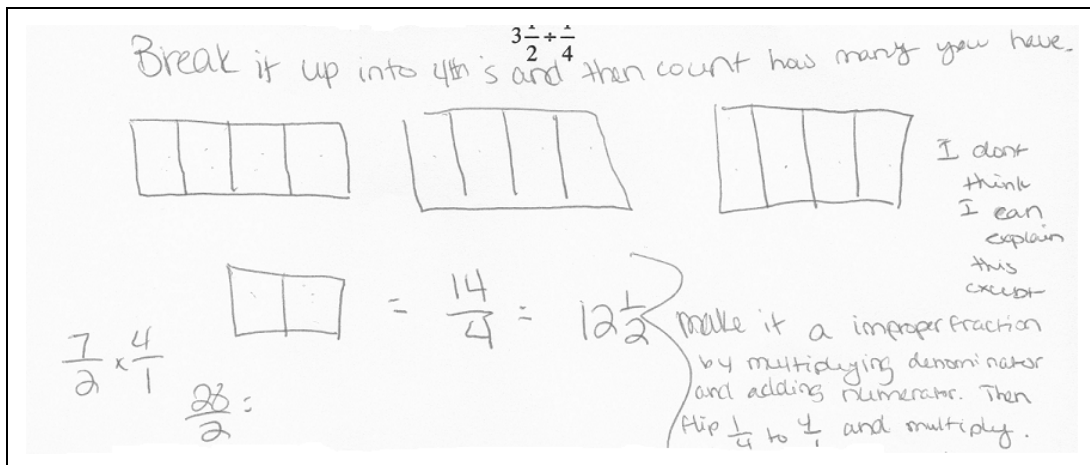 3 1/2 ÷ 1/4
Break it up into 4th's and then count how many you have.
I dont
think
I can
explain
this
except
= 14/4 = 12 1/2
make it a improper fraction
by multiplying denominator
and adding numerator. Then
flip 1/4 to 4/1 and multiply.
7/2 × 4/1
28/2 =